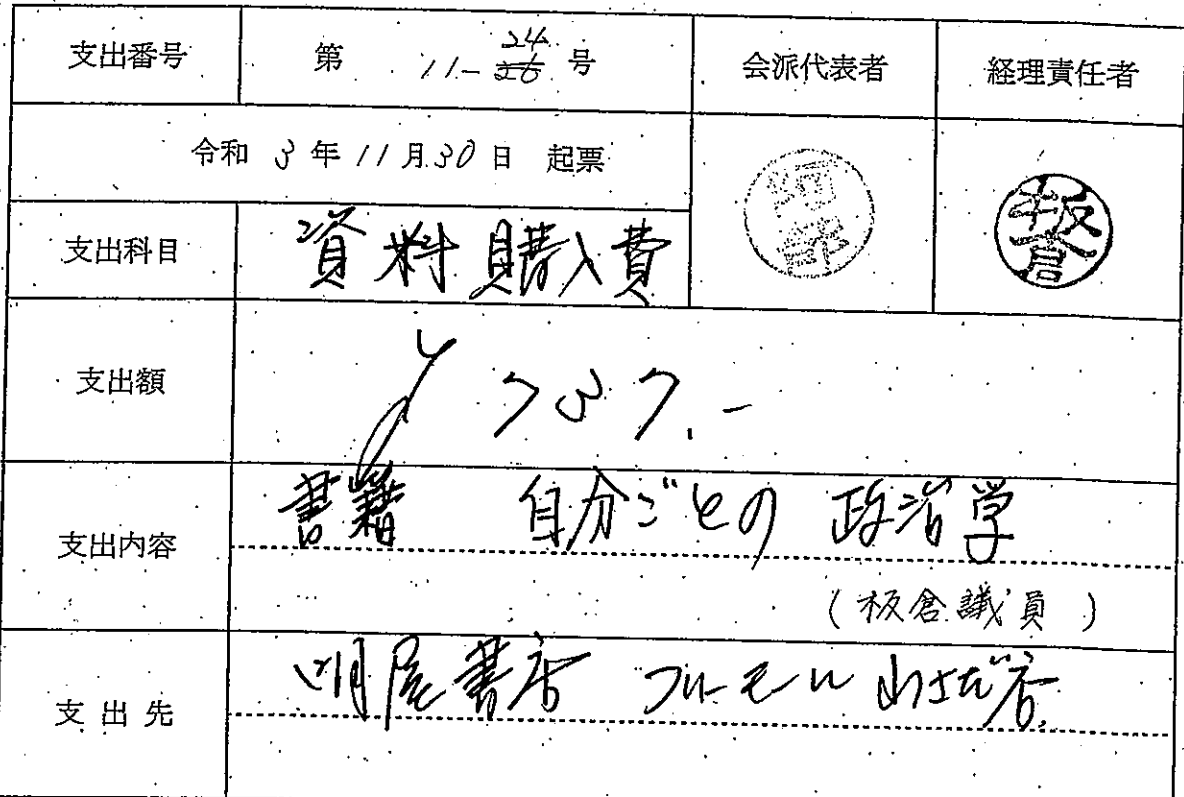 支出番号 第 11-24 26 号 会派代表者 経理責任者
令和 3 年 11 月 30 日 起票
板倉
支出科目 資料購入費
支出額 ¥737.-
支出内容 書籍 自分ごとの 政治学
(板倉議員)
支出先 明屋書店 フルーモール